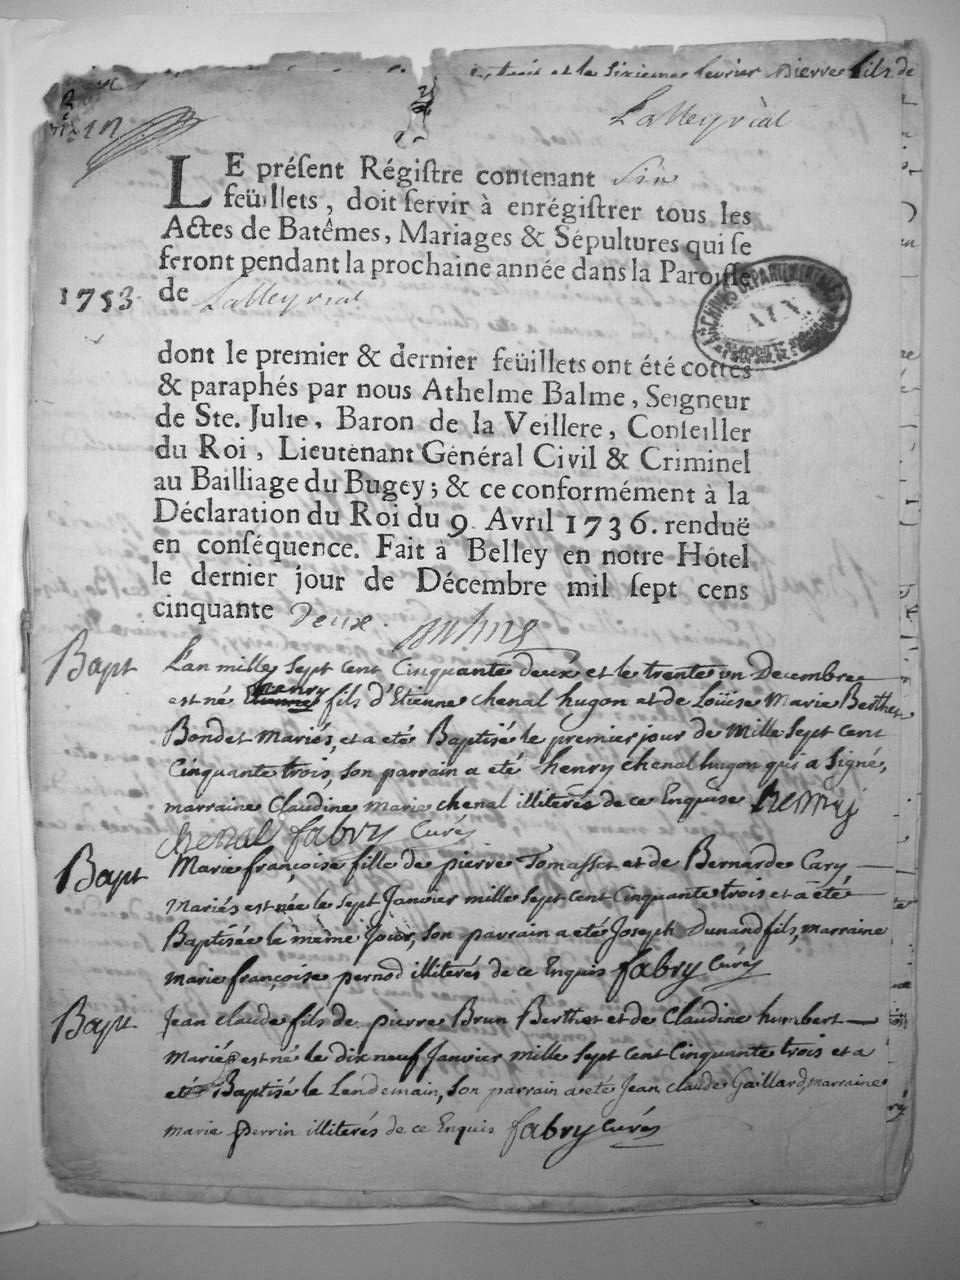 trois et le sixieme fevrier pierre fils de
Lalleyriat
LE présent Régistre contenant Six
feüillets, doit servir à enrégistrer tous les
Actes de Batêmes, Mariages & Sépultures qui se
feront pendant la prochaine année dans la Paroisse
1753. de Lalleyriat
ARCHIVES DEPARTEMENTALES
AIN
dont le premier & dernier feüillets ont été cottés
& paraphés par nous Athelme Balme, Seigneur
de Ste. Julie, Baron de la Veillere, Conseiller
du Roi, Lieutenant Général Civil & Criminel
au Bailliage du Bugey; & ce conformément à la
Déclaration du Roi du 9. Avril 1736. renduë
en conséquence. Fait à Belley en notre Hôtel
le dernier jour de Décembre mil sept cens
cinquante Deux.
Bapt L'an mille sept cent Cinquante deux et le trente un Decembre
est né henry fils d'Etienne chenal hugon et de Loüise Marie Berthet
Bondet mariés, et a eté Baptisé le premier jour de Mille Sept cent
Cinquante trois, son parrain a eté henry chenal hugon qui a Signé,
marraine Claudine marie chenal illiterés de ce Enquise henry
chenal fabry Curé
Bapt Marie françoise fille de pierre Tomasset et de Bernarde Cary
mariés est née le sept Janvier mille sept cent Cinquante trois et a été
Baptisée le même Jour, son parrain a eté Joseph Dunand fils, marraine
marie françoise pernod illiterés de ce Enquis fabry Curé
Bapt Jean claude fils de pierre Brun Berthet et de Claudine humbert
mariés est né le dix neuf Janvier mille sept cent Cinquante trois et a
eté Baptisé le Lendemain, son parrain a eté Jean claude Gaillard, marraine
marie perrin illiterés de ce Enquis fabry Curé